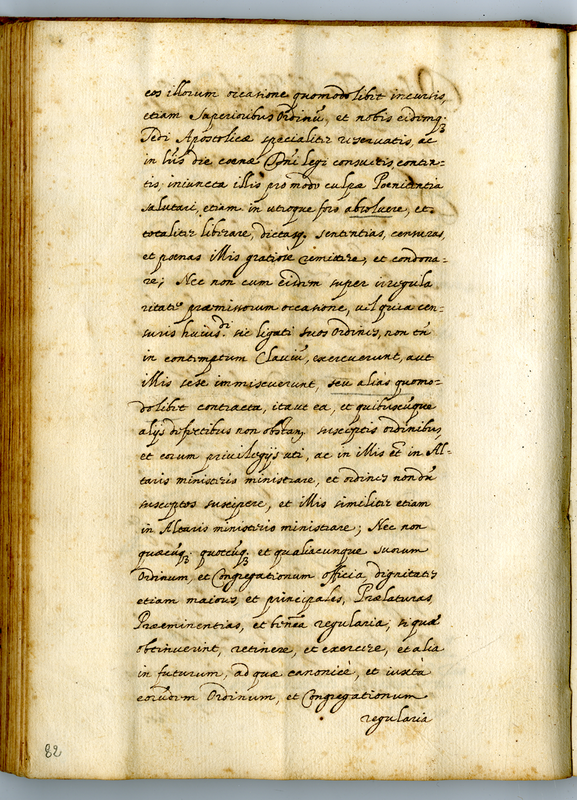 eos illorum occasione quomodolibet incursis,
etiam Superioribus Ordinũ, et nobis eidemq₃
Sedi Apostolicæ specialiter reservatis, ac
in lrĩs die coenæ Dnĩ legi consuetis conten=
tis, iniuncta illis pro modo culpæ Poenitentia
salutari, etiam in utroque foro absoluere, et
totaliter liberare, dictasq₃ sententias, censuras,
et poenas illis gratiose remittere, et condona=
re; Nec non cum eisdem super irregula
ritate præmissorum occasione, vel quia cen=
suris huiusdi sic ligati suos Ordines, non tñ
in contemptum Clauiũ, exercuerunt, aut
illis sese immiscuerunt, seu aliàs quomo=
dolibet contracta, ita ut ea, et quibuscũque
alijs defectibus non obstan, susceptis ordinibus,
et eorum priuilegijs uti, ac in illis et in Al=
taris ministeris ministrare, et ordines nondũ
susceptos suscipere, et illis similiter etiam
in Altaris ministeris ministrare; Nec non
quæcũq₃ quotcũq₃ et qualiacunque suorum
Ordinum, et Congregationum officia, dignitates
etiam maiores, et principales, Prælaturas,
Præeminentias, et bñea regularia, si quæ
obtinuerint, retinere, et exercere, et alia
in futurum, ad quæ canonicè, et iuxtà
eorũdem Ordinum, et Congregationum
regularia
82